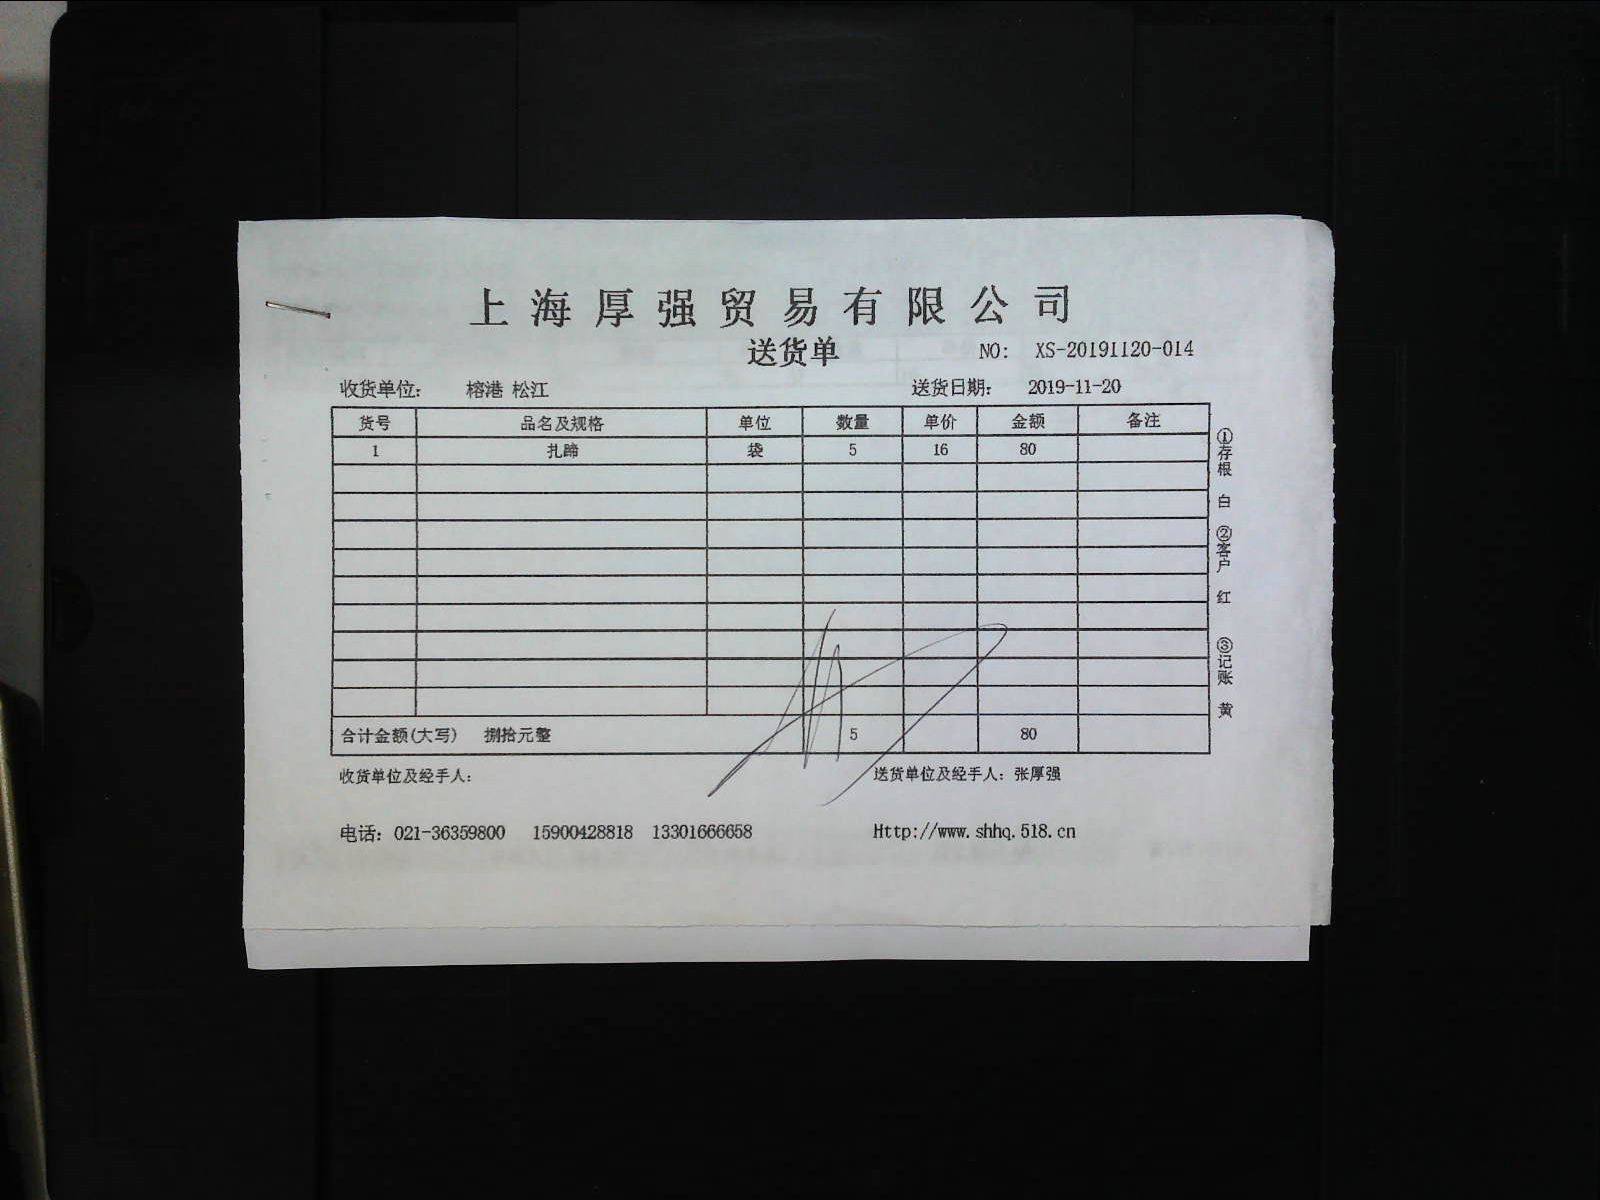 上海厚强贸易有限公司
送货单
NO: XS-20191120-014
收货单位: 榕港 松江 送货日期: 2019-11-20
货号 品名及规格 单位 数量 单价 金额 备注
1 扎蹄 袋 5 16 80
合计金额(大写) 捌拾元整 5 80
收货单位及经手人: 送货单位及经手人: 张厚强
电话: 021-36359800 15900428818 13301666658 Http://www.shhq.518.cn
①存根 白 ②客户 红 ③记账 黄